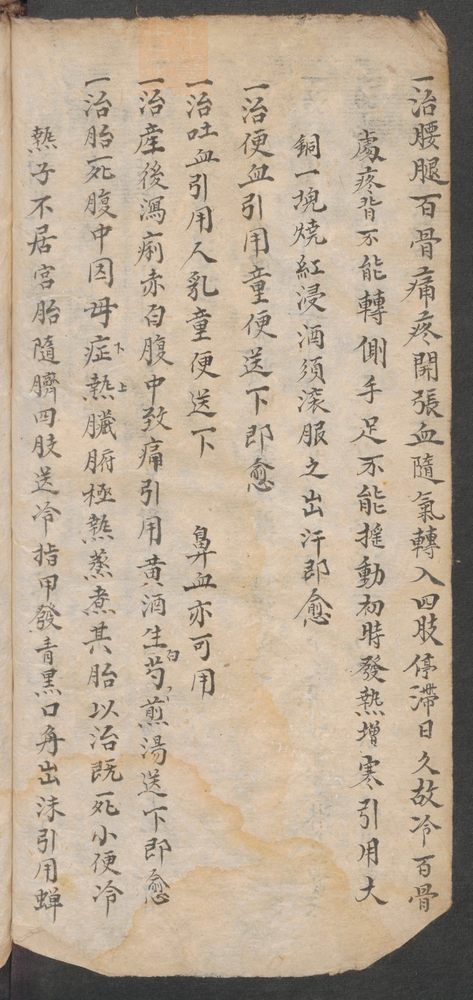 一治腰腿百骨痛疼開張血隨氣轉入四肢停滯日久故冷百骨
處疼背不能轉側手足不能搖動初時發熱增寒引用大
銅一塊燒紅浸酒須滚服之出汗即愈
一治便血引用童便送下即愈
一治吐血引用人乳童便送下 鼻血亦可用
一治産後瀉痢赤白腹中致痛引用黄酒生白芍煎湯送下即愈
一治胎死腹中因母症下熱上臟腑極熱蒸煮其胎以治既死小便冷
熱子不居宮胎隨臍四肢送冷指甲發青黑口角出沫引用蝉